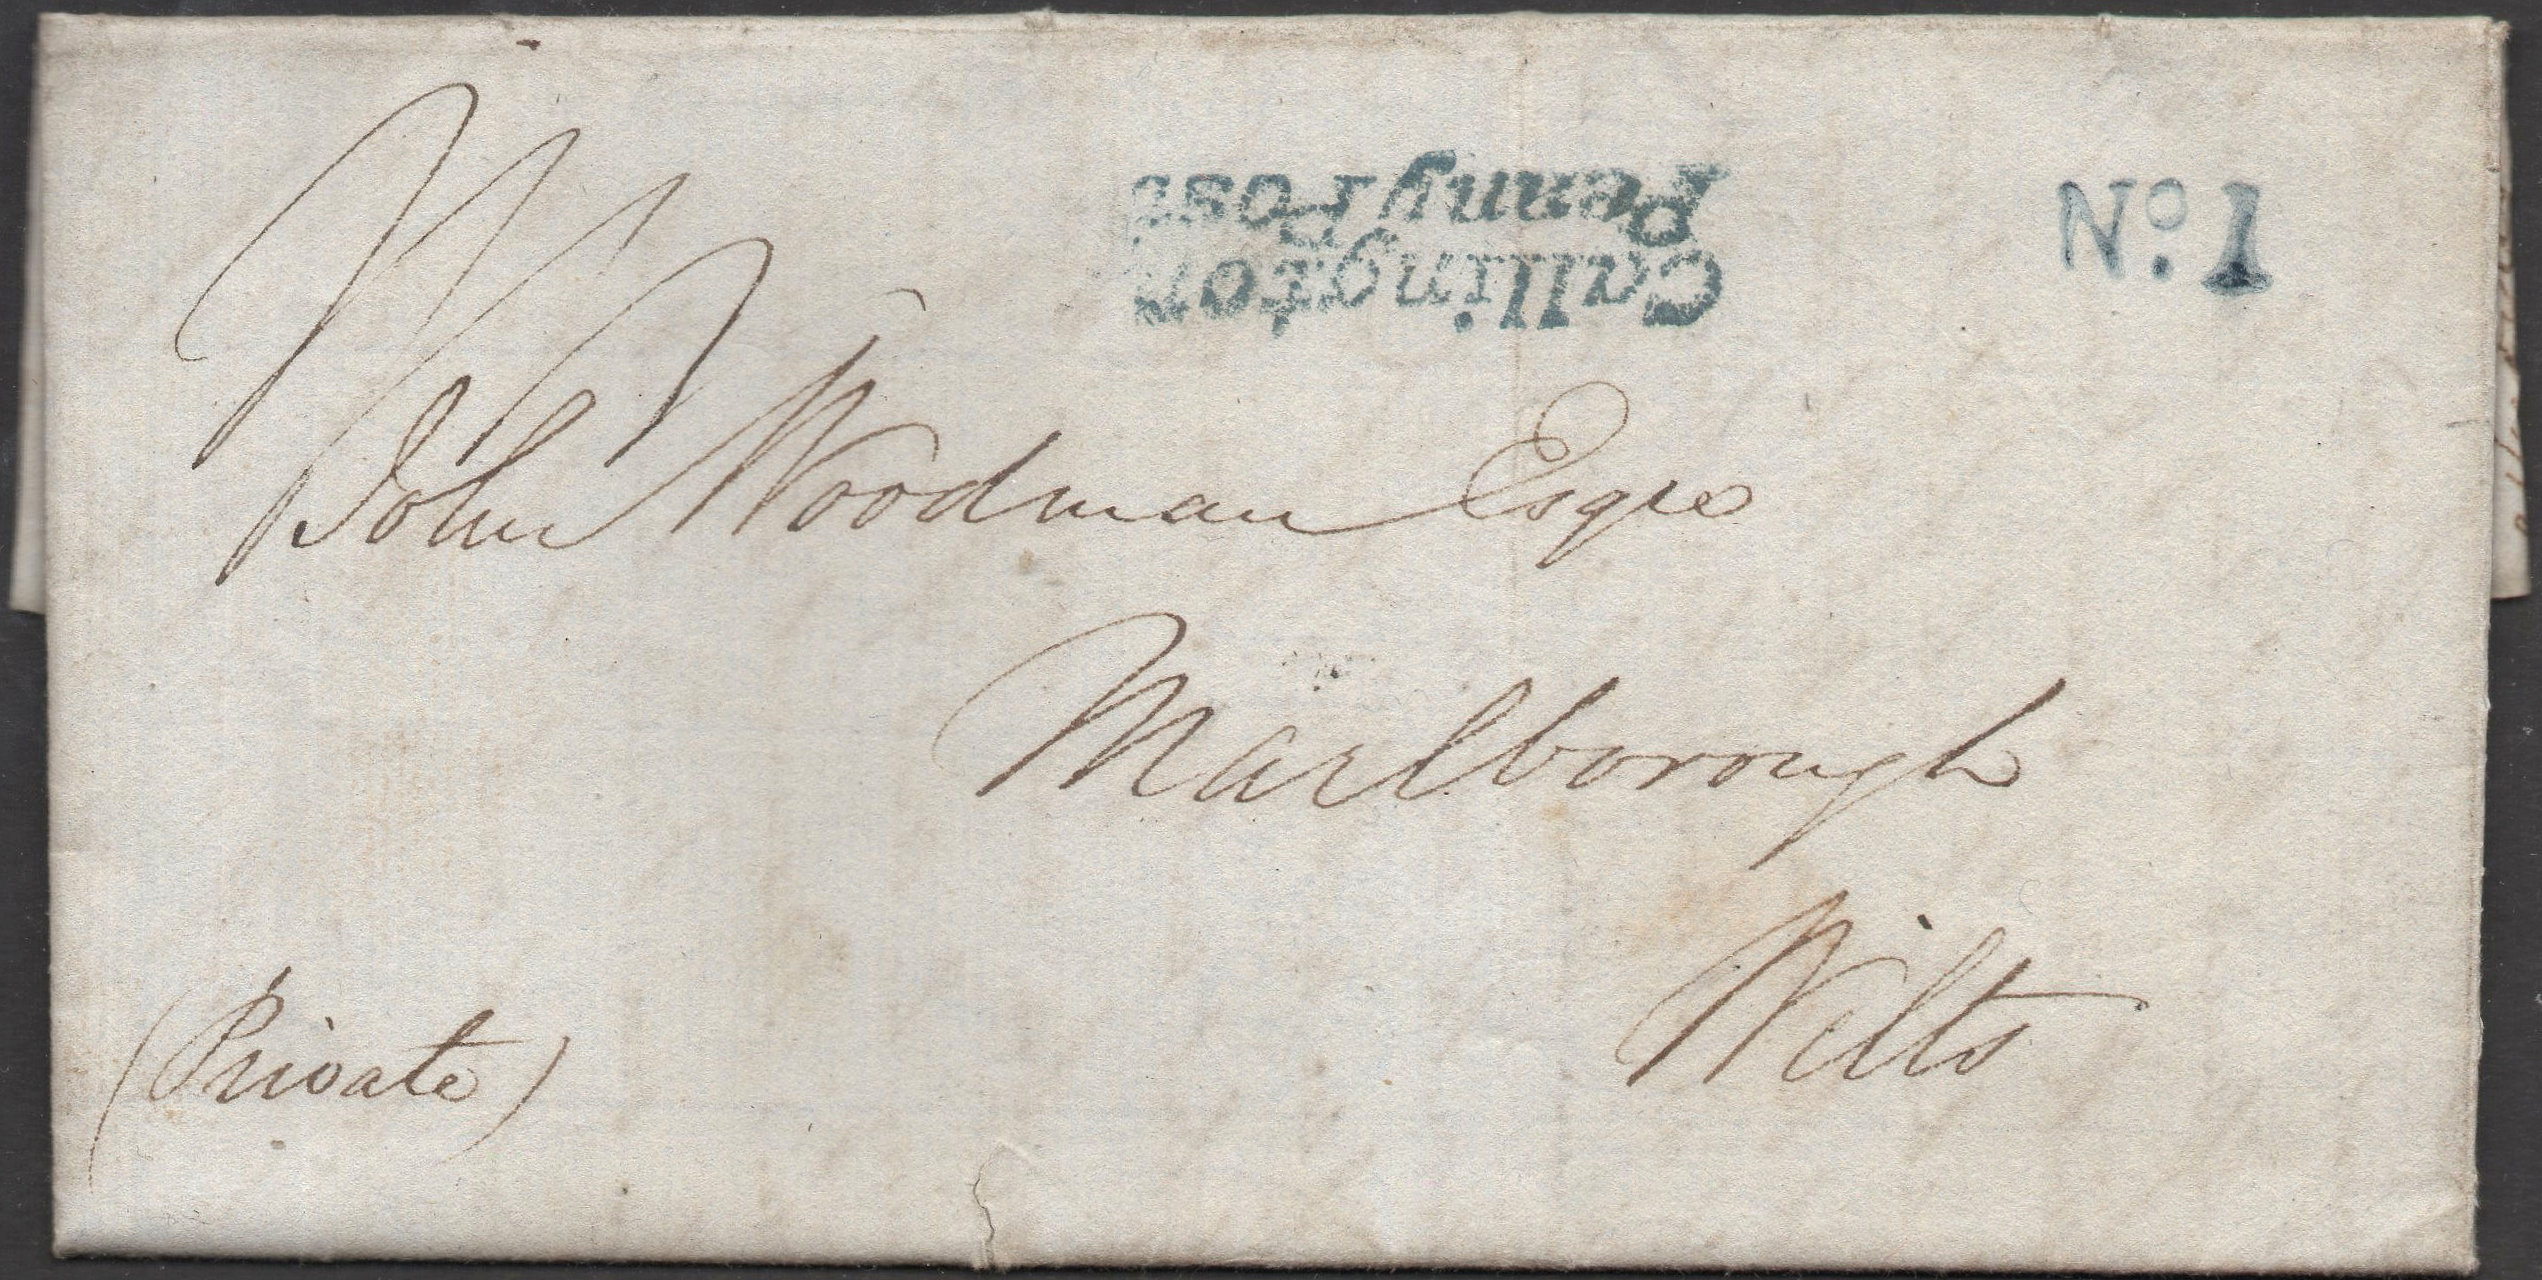 Callington
Penny Post
No. 1
John Woodman Esqre
Marlborough
Wilts
(Private)